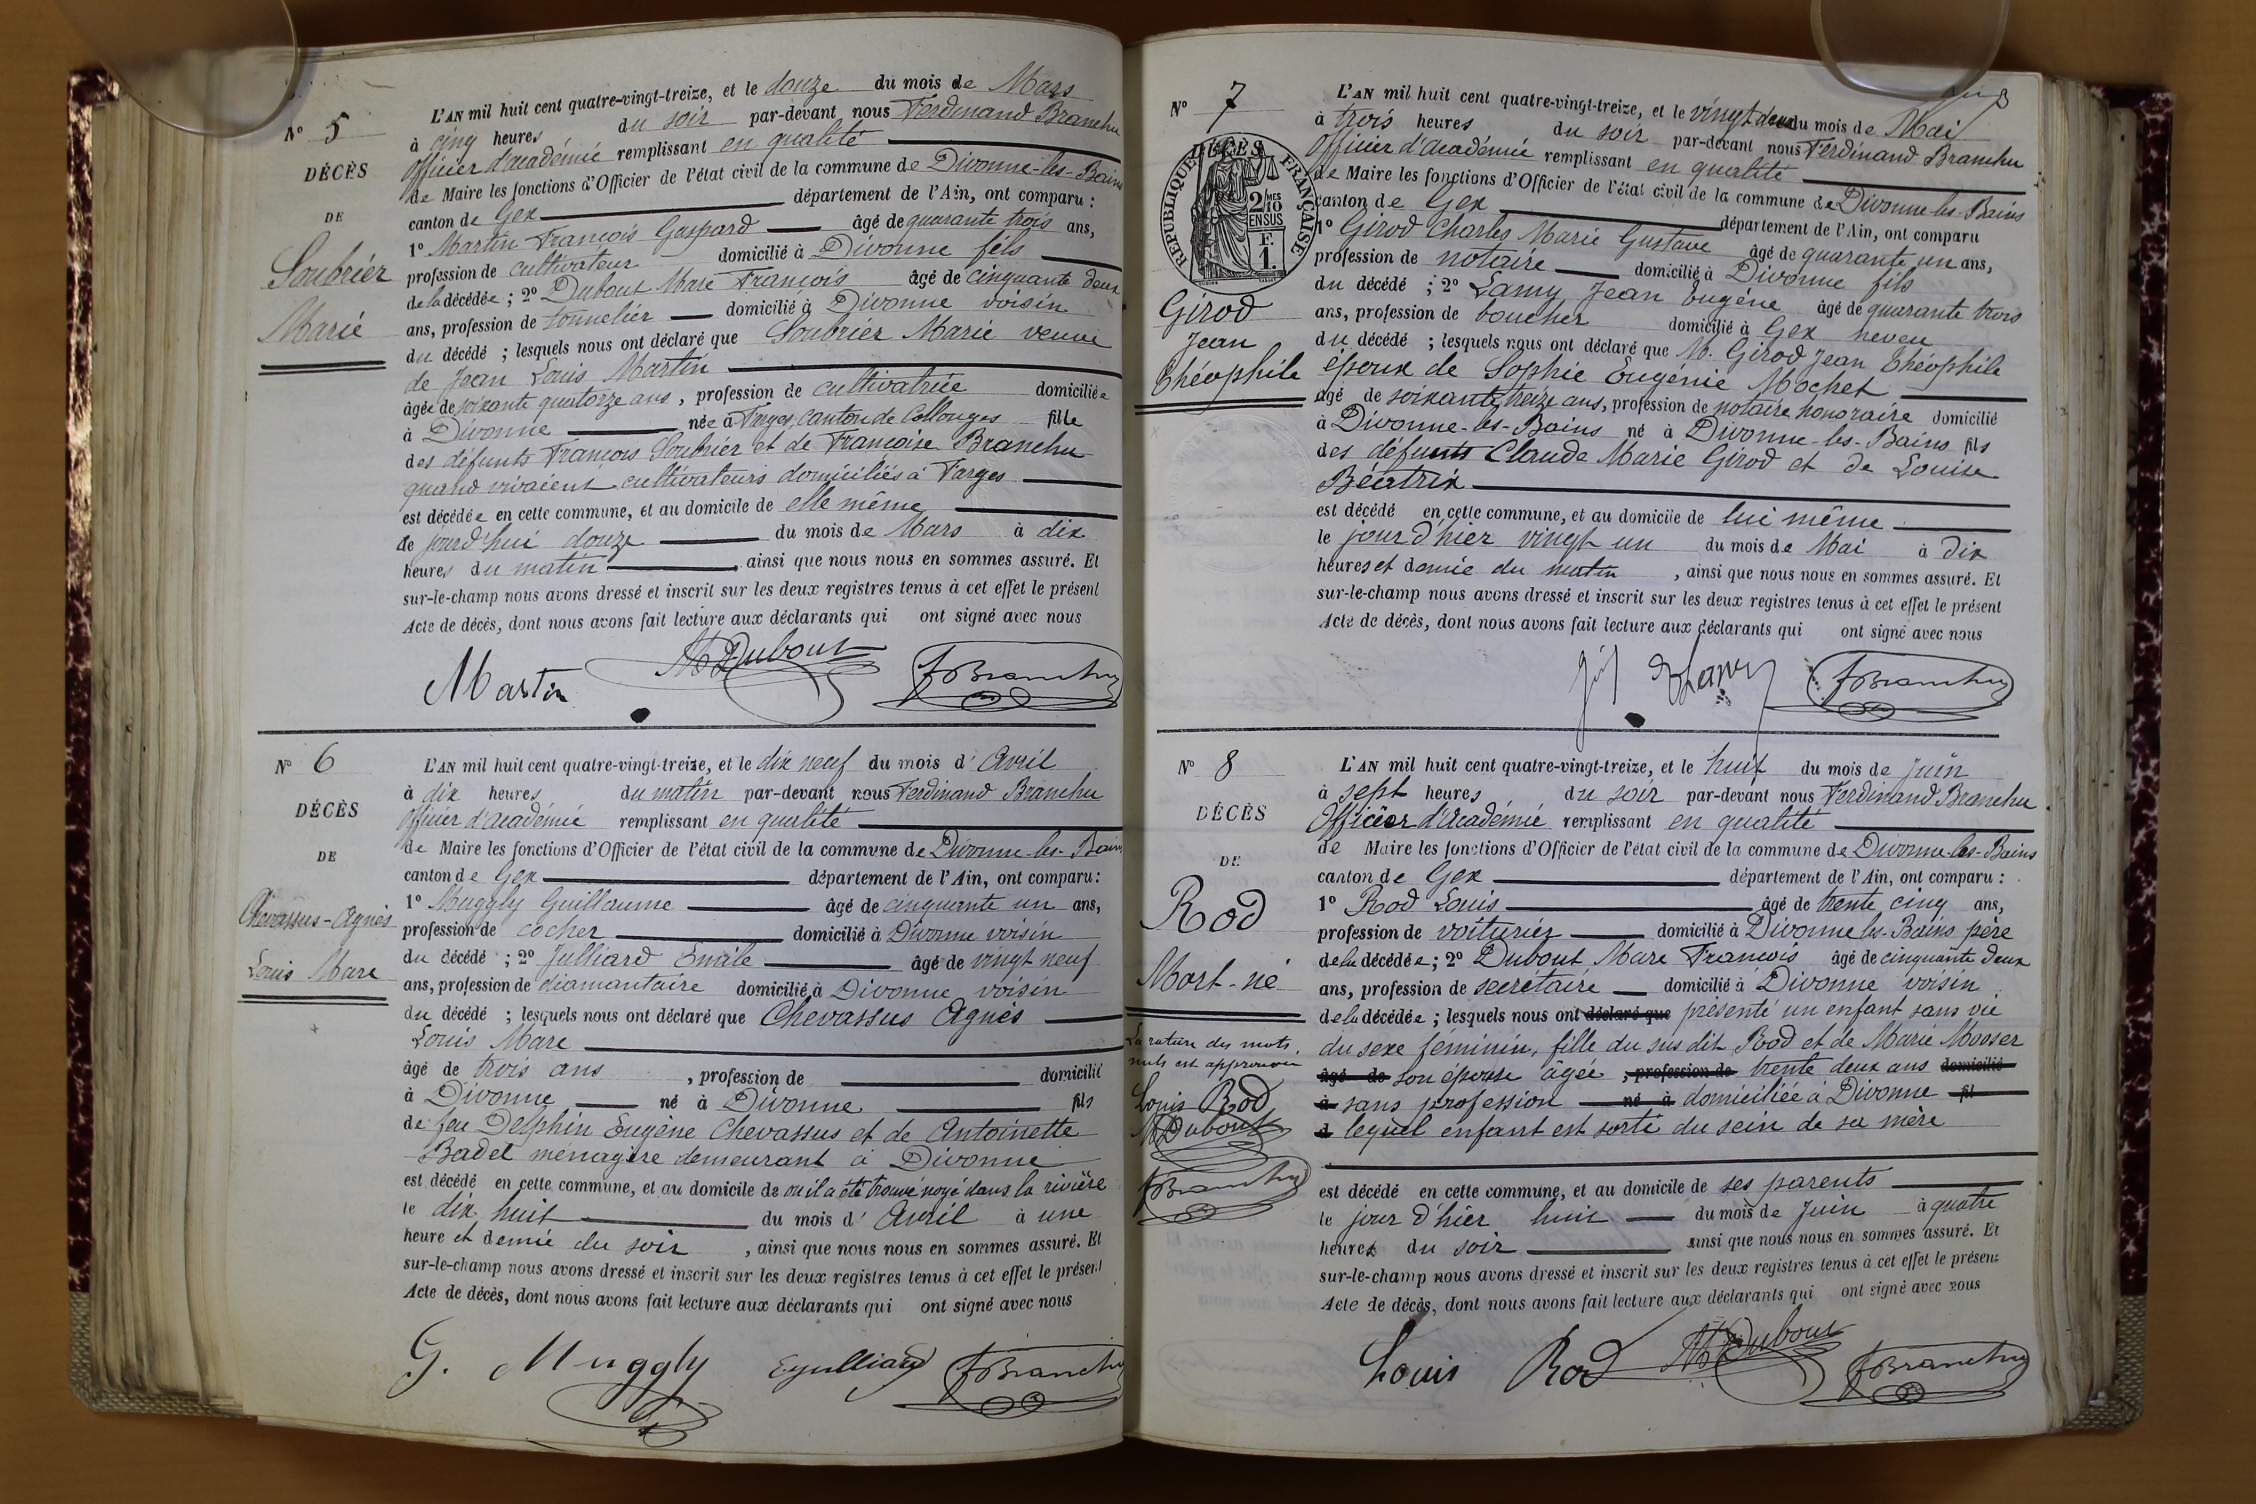 N° 5
DÉCÈS
DE
Soubrier
Marie
L'AN mil huit cent quatre-vingt-treize, et le douze du mois de Mars
à cinq heures du soir par-devant nous Ferdinand Branchu
Officier d'académie remplissant en qualité
de Maire les fonctions d'Officier de l'état civil de la commune de Divonne-les-Bains
canton de Gex département de l'Ain, ont comparu :
1° Martin François Gaspard âgé de quarante trois ans,
profession de cultivateur domicilié à Divonne fils
de la décédée ; 2° Dubout Marc François âgé de cinquante deux
ans, profession de tonnelier domicilié à Divonne voisin
du décédé ; lesquels nous ont déclaré que Soubrier Marie veuve
de Jean Louis Martin
âgée de soixante quatorze ans, profession de cultivatrice domiciliée
à Divonne née à Farges, canton de Collonges fille
des défunts François Soubrier et de Françoise Branchu
quand vivaient cultivateurs domiciliés à Farges
est décédée en cette commune, et au domicile de elle même
le jourd'hui douze du mois de Mars à dix
heures du matin ainsi que nous nous en sommes assuré. Et
sur-le-champ nous avons dressé et inscrit sur les deux registres tenus à cet effet le présent
Acte de décès, dont nous avons fait lecture aux déclarants qui ont signé avec nous
Martin MDubout FBranchu
N° 6
DÉCÈS
DE
Chevassus-Agnès
Louis Marc
L'AN mil huit cent quatre-vingt-treize, et le dix neuf du mois d' Avril
à dix heures du matin par-devant nous Ferdinand Branchu
Officier d'académie remplissant en qualité
de Maire les fonctions d'Officier de l'état civil de la commune de Divonne-les-Bains
canton de Gex département de l'Ain, ont comparu :
1° Muggly Guillaume âgé de cinquante un ans,
profession de cocher domicilié à Divonne voisin
du décédé ; 2° Julliard Emile âgé de vingt neuf
ans, profession de diamantaire domicilié à Divonne voisin
du décédé ; lesquels nous ont déclaré que Chevassus Agnès
Louis Marc
âgé de trois ans , profession de domicilié
à Divonne né à Divonne fils
de feu Delphin Eugène Chevassus et de Antoinette
Badel ménagère demeurant à Divonne
est décédé en cette commune, et au domicile de où il a été trouvé noyé dans la rivière
le dix huit du mois d' Avril à une
heure et demie du soir , ainsi que nous nous en sommes assuré. Et
sur-le-champ nous avons dressé et inscrit sur les deux registres tenus à cet effet le présent
Acte de décès, dont nous avons fait lecture aux déclarants qui ont signé avec nous
G. Muggly EJulliard FBranchu
N° 7
DÉCÈS
RÉPUBLIQUE FRANÇAISE
2/10 MES
EN SUS
F.
1.
Girod
Jean
Théophile
L'AN mil huit cent quatre-vingt-treize, et le vingt deux du mois de Mai
à trois heures du soir par-devant nous Ferdinand Branchu
Officier d'académie remplissant en qualité
de Maire les fonctions d'Officier de l'état civil de la commune de Divonne-les-Bains
canton de Gex département de l'Ain, ont comparu
1° Girod Charles Marie Gustave âgé de quarante un ans,
profession de notaire domicilié à Divonne fils
du décédé ; 2° Lamy Jean Eugène âgé de quarante trois
ans, profession de boucher domicilié à Gex neveu
du décédé ; lesquels nous ont déclaré que M. Girod Jean Théophile
époux de Sophie Eugénie Mochet
âgé de soixante treize ans, profession de notaire honoraire domicilié
à Divonne-les-Bains né à Divonne-les-Bains fils
des défunts Claude Marie Girod et de Louise
Béatrix
est décédé en cette commune, et au domicile de lui même
le jour d'hier vingt un du mois de Mai à dix
heures et demie du matin , ainsi que nous nous en sommes assuré. Et
sur-le-champ nous avons dressé et inscrit sur les deux registres tenus à cet effet le présent
Acte de décès, dont nous avons fait lecture aux déclarants qui ont signé avec nous
FBranchu
N° 8
DÉCÈS
DE
Rod
Mort-né
La rature des mots
nuls est approuvée
Louis Rod
MDubout
FBranchu
L'AN mil huit cent quatre-vingt-treize, et le huit du mois de Juin
à sept heures du soir par-devant nous Ferdinand Branchu
Officier d'académie remplissant en qualité
de Maire les fonctions d'Officier de l'état civil de la commune de Divonne-les-Bains
canton de Gex département de l'Ain, ont comparu :
1° Rod Louis âgé de trente cinq ans,
profession de voiturier domicilié à Divonne les-Bains père
de la décédée ; 2° Dubout Marc François âgé de cinquante deux
ans, profession de secrétaire domicilié à Divonne voisin
de la décédée ; lesquels nous ont déclaré que présenté un enfant sans vie
du sexe féminin, fille du sus dit Rod et de Marie Mooser
âgé de son épouse âgée , profession de trente deux ans domicilié
à sans profession né à domiciliée à Divonne fil
d lequel enfant est sorti du sein de sa mère
est décédé en cette commune, et au domicile de ses parents
le jour d'hier huit du mois de Juin à quatre
heures du soir ainsi que nous nous en sommes assuré. Et
sur-le-champ nous avons dressé et inscrit sur les deux registres tenus à cet effet le présent
Acte de décès, dont nous avons fait lecture aux déclarants qui ont signé avec nous
Louis Rod MDubout FBranchu